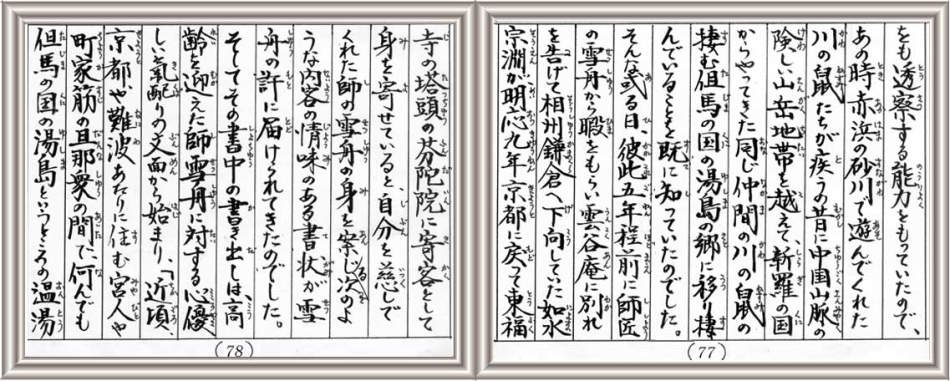 をも透察する能力をもっていたので、
あの時赤浜の砂川で遊んでくれた
川の鼠たちが疾うの昔に中国山脈の
険しい山岳地帯を越えて、新羅の国
からやってきた同じ仲間の川の鼠の
棲む但馬の国の湯島の郷に移り棲
んでいることを既に知っていたのでした。
そんな或る日、彼此五年程前に師匠
の雪舟から暇をもらい雲谷庵に別れ
を告げて相州鎌倉へ下向していた如水
宗淵が明応九年京都に戻って東福
(77)
寺の塔頭の芬陀院に寄客として
身を寄せていると、自分を慈しで
くれた師の雪舟の身を案じ次のよ
うな内容の情味のある書状が雪
舟の許に届けられてきたのでした。
そしてその書中の書き出しは、高
齢を迎えた師雪舟に対する心優
しい気配りの文面から始まり、「近頃
京都や難波あたりに住む宮人や
町家筋の旦那衆の間で、何んでも
但馬の国の湯島というところの温湯
(78)